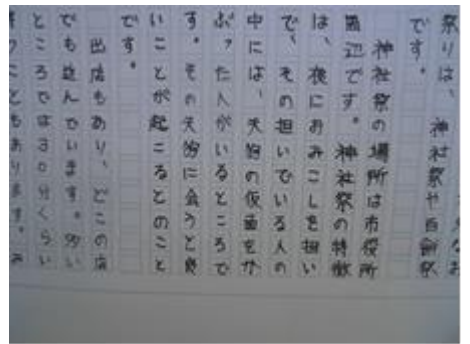 なお
祭りは、神社祭や
です。
神社祭の場所は市役所
周辺です。神社祭の特徴
は、夜におみこしを担い
で、その担いでいる人の
中には、天狗の仮面をか
ぶった人がいるところで
す。その天狗に会うと良
いことが起こるとのこと
です。
出店もあり、どこの店
でも込んでいます。多い
ところでは30分くらい
つこともあります。み